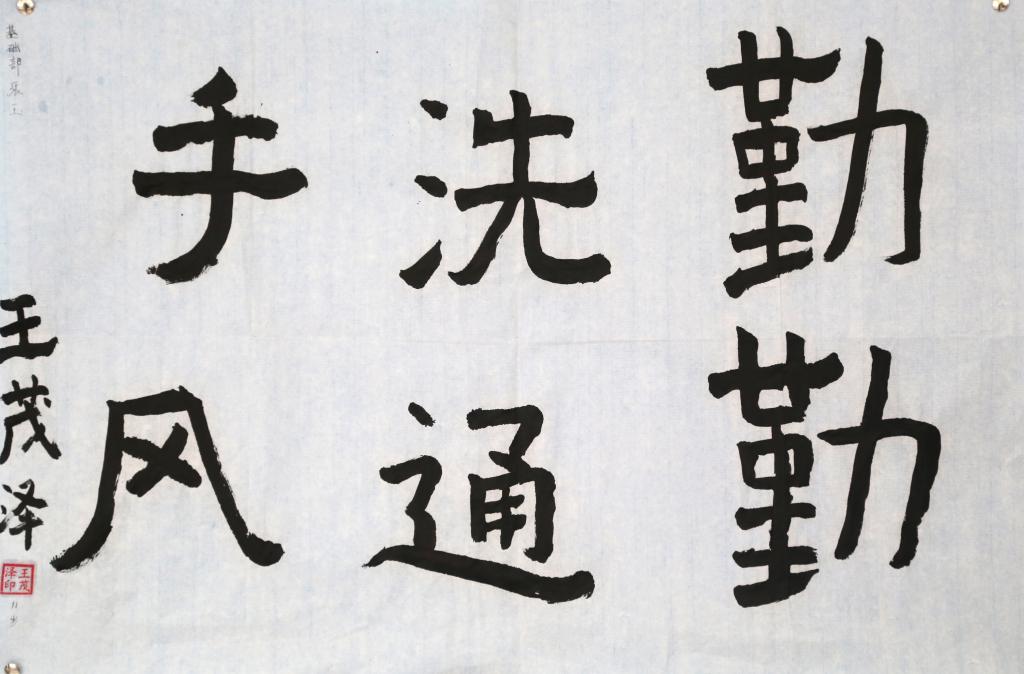 勤洗手
勤通风
王茂泽
王茂泽印
基础部